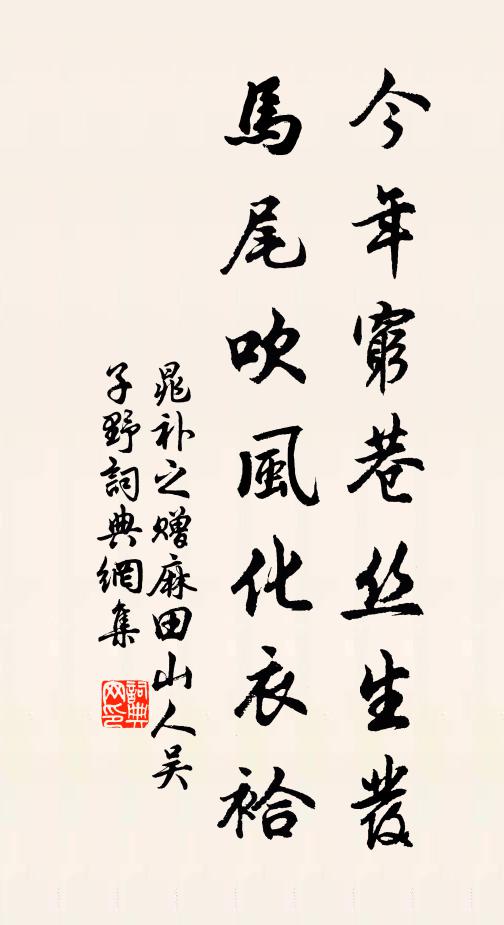 今年窮巷丝生發
馬尾吹風化衣袷
晁补之赠麻田山人吴
子野詞典網集
詞典网印